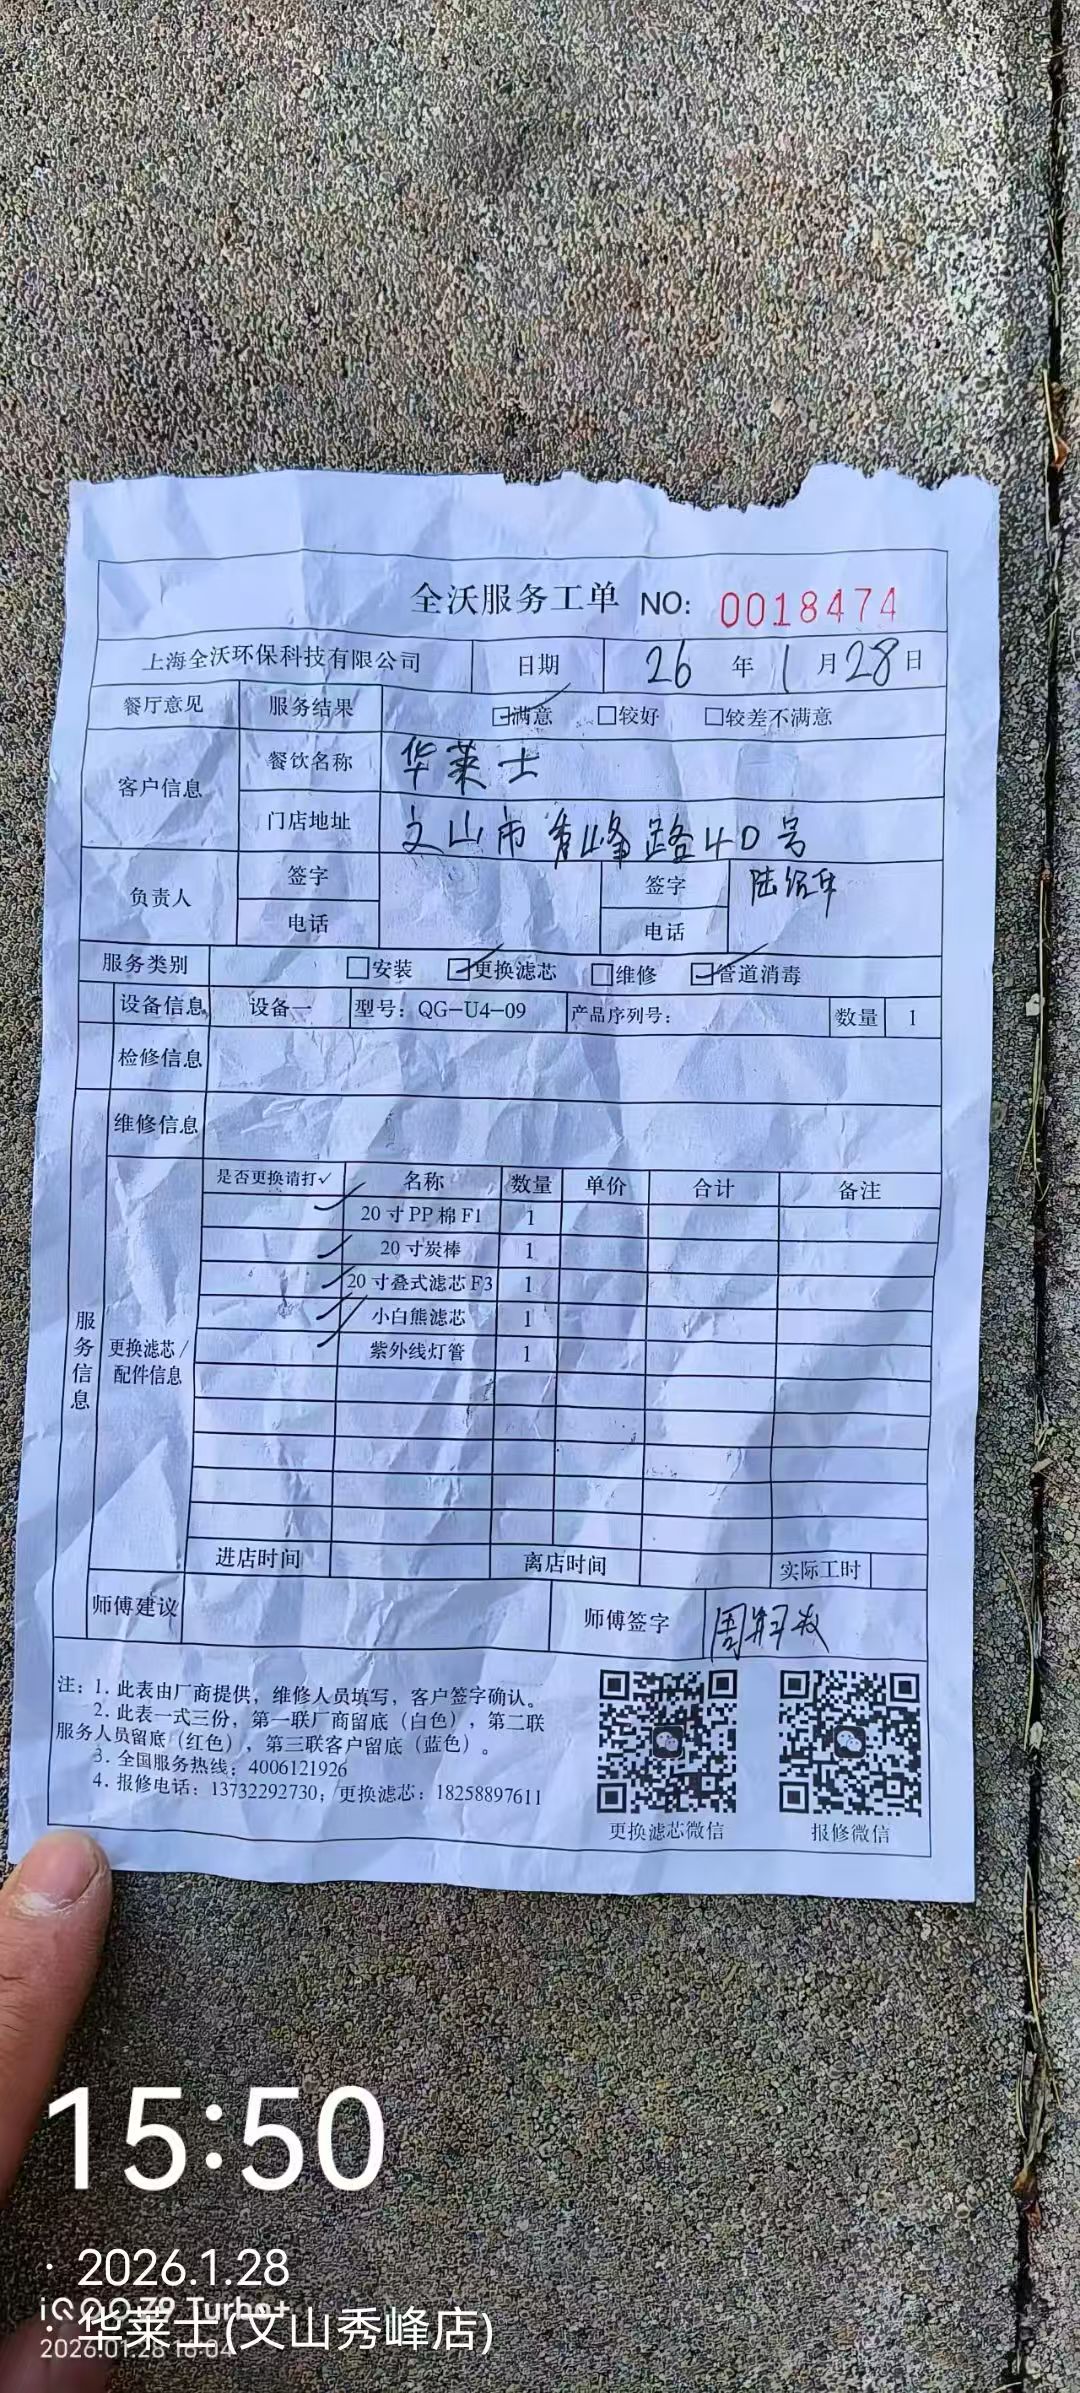 全沃服务工单 NO: 0018474
上海全沃环保科技有限公司 日期 26 年 1 月 28 日
餐厅意见 服务结果 ☑满意 □较好 □较差不满意
客户信息 餐饮名称 华莱士
门店地址 文山市秀峰路40号
负责人 签字 签字 陆绍
电话 电话
服务类别 □安装 ☑更换滤芯 □维修 ☑管道消毒
设备信息 设备一 型号：QG-U4-09 产品序列号： 数量 1
检修信息
维修信息
服务信息
更换滤芯/
配件信息
是否更换请打✓ 名称 数量 单价 合计 备注
✓ 20寸PP棉F1 1
✓ 20寸炭棒 1
✓ 20寸叠式滤芯F3 1
✓ 小白熊滤芯 1
✓ 紫外线灯管 1
进店时间 离店时间 实际工时
师傅建议 师傅签字 周
注：1. 此表由厂商提供，维修人员填写，客户签字确认。
2. 此表一式三份，第一联厂商留底（白色），第二联
服务人员留底（红色），第三联客户留底（蓝色）。
3. 全国服务热线：4006121926
4. 报修电话：13732292730；更换滤芯：18258897611
更换滤芯微信 报修微信
15:50
· 2026.1.28
iQOO Z9 Turbo+
· 华莱士(文山秀峰店)
2026.01.28 16:04